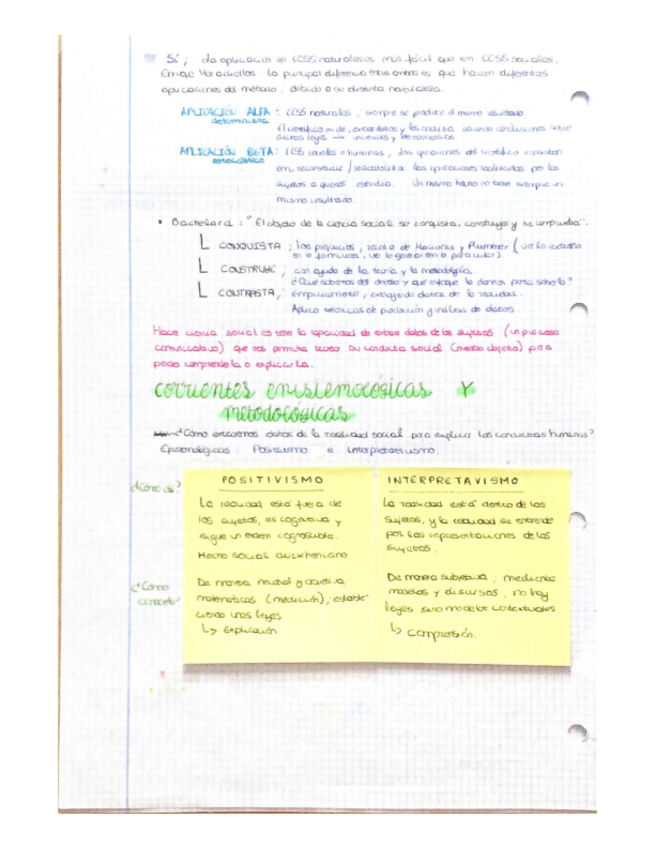 Sí; la aplicación en CCSS naturales es más fácil que en CCSS sociales,
Enrique Moradiellos: la principal diferencia entre ambas es que hacen diferentes
aplicaciones del método, debido a su distinta naturaleza.
APLICACIÓN ALFA: CCSS naturales, siempre se produce el mismo resultado
determinista
El científico mide, extrae datos y los analiza sacando conclusiones sobre
dichas leyes → universales y
APLICACIÓN BETA: CCSS sociales o humanas, las operaciones del científico consisten
estocástico
en reconstruir / las operaciones realizadas por los
sujetos a quienes estudia. Un mismo hecho no tiene siempre un
mismo resultado.
• Bachelard: "El objeto de la ciencia social se conquista, construye y se comprueba".
CONQUISTA; los prejuicios, de Macionis y Plummer (ve lo extraño
en lo familiar, ve lo general en lo particular).
CONSTRUYE; con ayuda de la teoría y la metodología,
¿Qué sabemos del objeto y que enfoque le damos para saberlo?
CONTRASTA; empíricamente, extrayendo datos de la realidad.
Aplico técnicas de producción y análisis de datos
Hacer ciencia social es tener la capacidad de extraer datos de los sujetos (un proceso
comunicativo) que nos permita conocer su conducta social (nuestro objeto) para
poder comprenderla o explicarla.
corrientes epistemológicas Y
metodológicas
¿Cómo extraemos datos de la realidad social para explicar las conductas humanas?
Epistemológicas: Positivismo e Interpretativismo.
¿Cómo es?
POSITIVISMO
La realidad está fuera de
los sujetos, es cognitiva y
sigue un orden cognoscible.
Hecho social durkheniano
INTERPRETAVISMO
La realidad está dentro de los
sujetos, y la realidad se entiende
por las representaciones de los
sujetos.
¿Cómo
conocerla?
De manera neutral y objetiva,
matemáticas (medición); estable
ciendo unas leyes
↳ Explicación
De manera subjetiva; mediante
modelos y discursos, no hay
leyes sino modelos contextuales
↳ Comprensión.